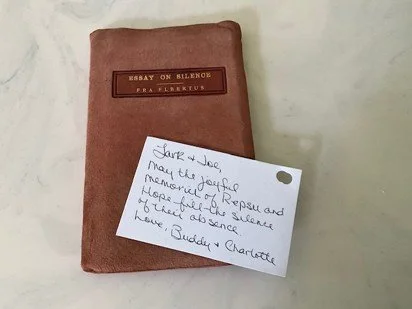 ESSAY ON SILENCE
FRA ELBERTUS
Lark + Joe,
may the joyful
memories of and
Hope fill the silence
of their absence.
Love, Buddy + Charlotte